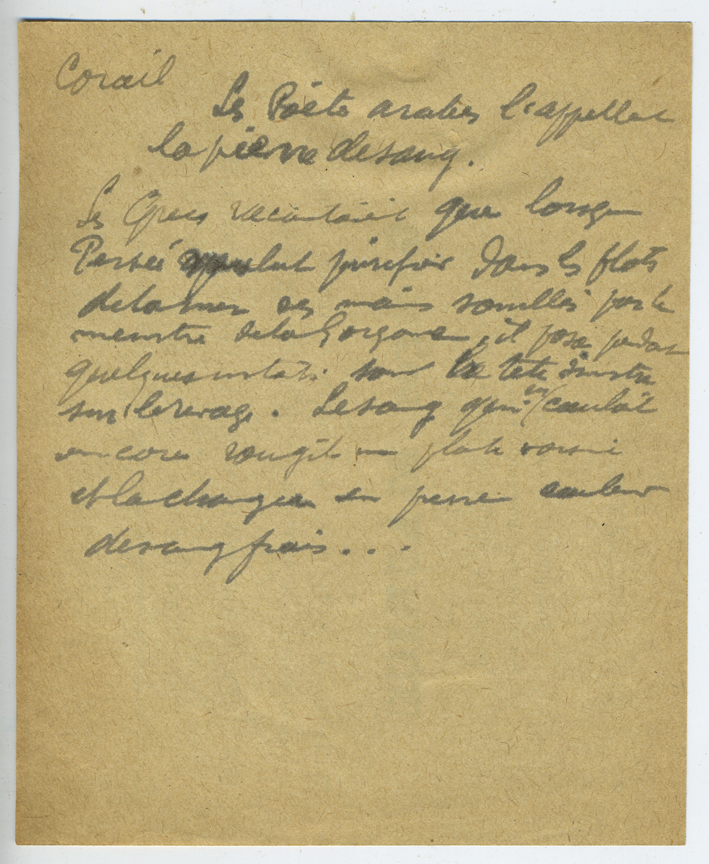 Corail
Les Poètes arabes l'appellent
la pierre de sang.
Les Grecs racontaient que lorsque
Persée voulut purifier dans les flots
de la mer ses mains souillées par le
meurtre de la Gorgone, il posa pendant
quelques instants sa tête
sur le rivage. Le sang qui en coulait
encore rougit une plante voisine
et la changea en pierre couleur
de sang frais...